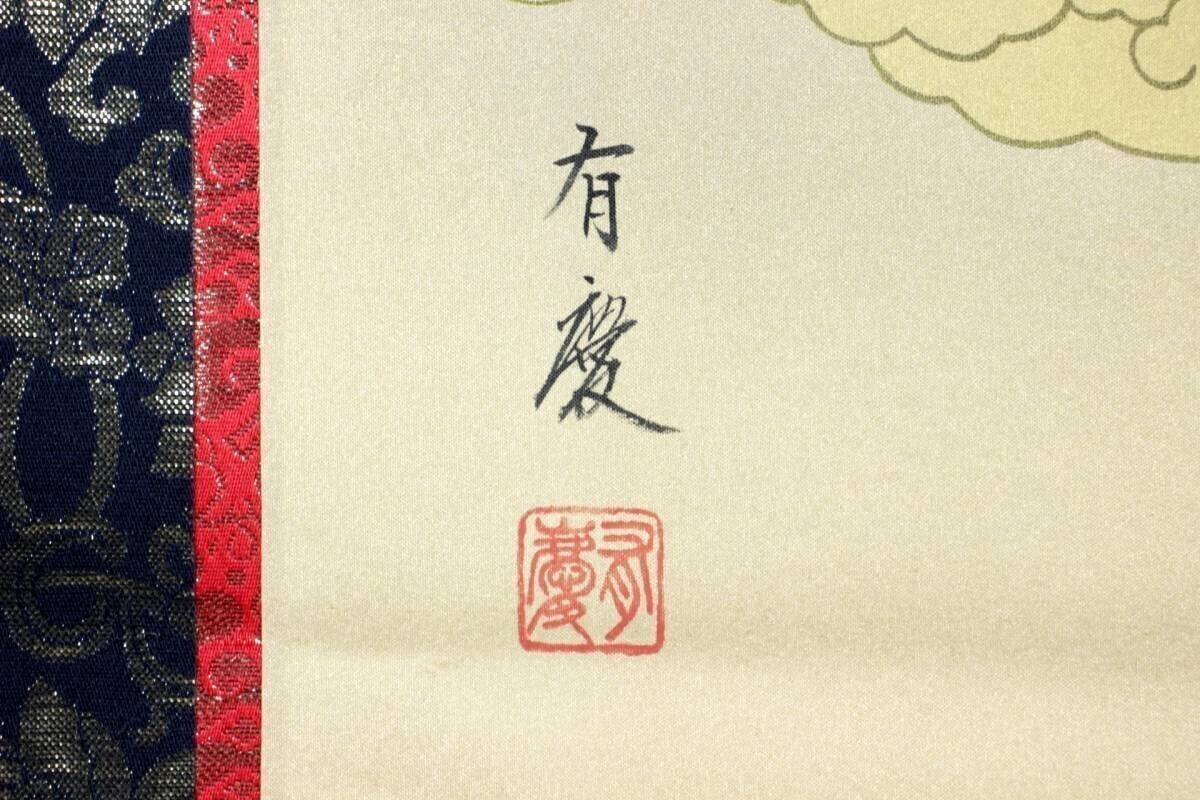 有慶
有慶